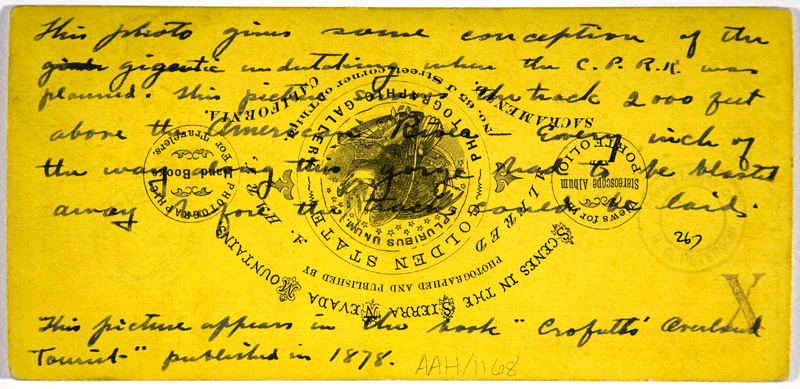 This photo gives some conception of the
gigantic undertaking when the C.P.R.R. was
planned. This picture shows the track 2000 feet
above the American River - Every inch of
the way along this gorge had to be blasted
away before the track could be laid.
267
This picture appears in the book "Crofutts' Overland
Tourist" published in 1878.
AAH/1168
X
SCENES IN THE SIERRA NEVADA MOUNTAINS,
PHOTOGRAPHED AND PUBLISHED BY
ALFRED A. HART,
GOLDEN STATE PHOTOGRAPHIC GALLERY
E PLURIBUS UNUM.
No. 65 J Street, corner of Third,
SACRAMENTO, CALIFORNIA.
Views for the
Stereoscope Album
PORTFOLIO
PHOTOGRAPHIC
Hand-Book
For Travelers.